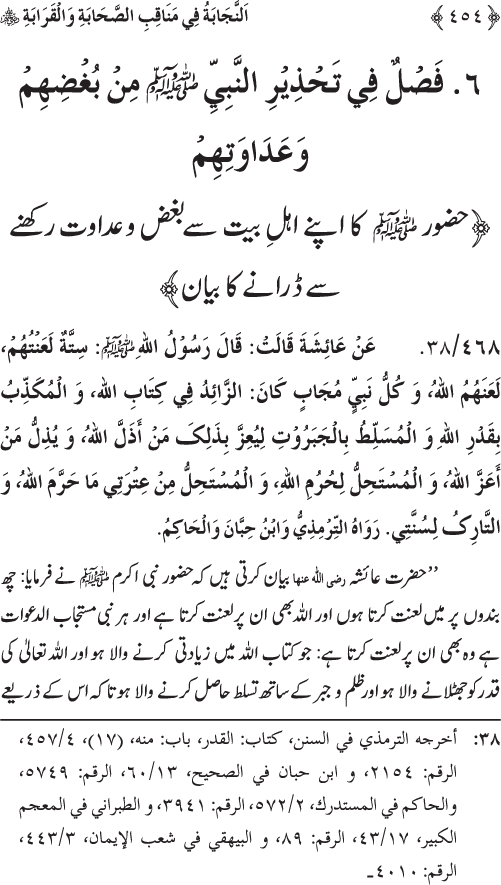 ﴿٤٥٤﴾ اَلنَّجَابَةُ فِي مَنَاقِبِ الصَّحَابَةِ وَالْقَرَابَةِ ﷺ
٦. فَصْلٌ فِي تَحْذِيْرِ النَّبِيِّ ﷺ مِنْ بُغْضِهِمْ
وَعَدَاوَتِهِمْ
﴿حضور ﷺ کا اپنے اہلِ بیت سے بغض و عداوت رکھنے
سے ڈرانے کا بیان﴾
٣٨/٤٦٨. عَنْ عَائِشَةَ قَالَتْ: قَالَ رَسُوْلُ اللهِ ﷺ: سِتَّةٌ لَعَنْتُهُمْ،
لَعَنَهُمُ اللهُ، وَ كُلُّ نَبِيٍّ مُجَابٍ كَانَ: الزَّائِدُ فِي كِتَابِ اللهِ، وَ الْمُكَذِّبُ
بِقَدْرِ اللهِ وَ الْمُسَلِّطُ بِالْجَبَرُوْتِ لِيُعِزَّ بِذَلِکَ مَنْ أَذَلَّ اللهُ، وَ يُذِلُّ مَنْ
أَعَزَّ اللهُ، وَ الْمُسْتَحِلُّ لِحُرُمِ اللهِ، وَ الْمُسْتَحِلُّ مِنْ عِتْرَتِي مَا حَرَّمَ اللهُ، وَ
التَّارِکُ لِسُنَّتِي. رَوَاهُ التِّرْمِذِيُّ وَابْنُ حِبَّانَ وَالْحَاکِمُ.
”حضرت عائشہ رضی اللہ عنہا بیان کرتی ہیں کہ حضور نبی اکرم ﷺ نے فرمایا: چھ
بندوں پر میں لعنت کرتا ہوں اور اللہ بھی ان پر لعنت کرتا ہے اور ہر نبی مستجاب الدعوات
ہے وہ بھی ان پر لعنت کرتا ہے: جو کتاب اللہ میں زیادتی کرنے والا ہو اور اللہ تعالیٰ کی
قدر کو جھٹلانے والا ہو اور ظلم و جبر کے ساتھ تسلط حاصل کرنے والا ہو تاکہ اس کے ذریعے
٣٨: أخرجه الترمذي في السنن، كتاب: القدر، باب: منه، (١٧)، ٤/٤٥٧،
الرقم: ٢١٥٤، و ابن حبان في الصحيح، ١٣/٦٠، الرقم: ٥٧٤٩،
والحاكم في المستدرك، ٢/٥٧٢، الرقم: ٣٩٤١، و الطبراني في المعجم
الكبير، ١٧/٤٣، الرقم: ٨٩، و البيهقي في شعب الإيمان، ٣/٤٤٣،
الرقم: ٤٠١٠۔